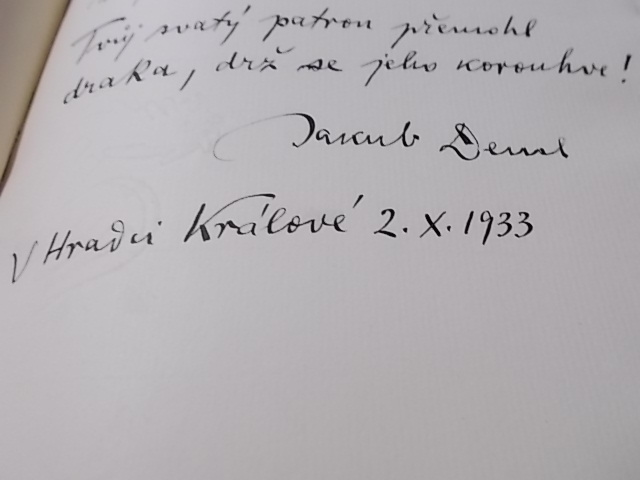 Tvůj svatý patron přemohl
draka, drž se jeho korouhve!
Jakub Deml
V Hradci Králové 2. X. 1933